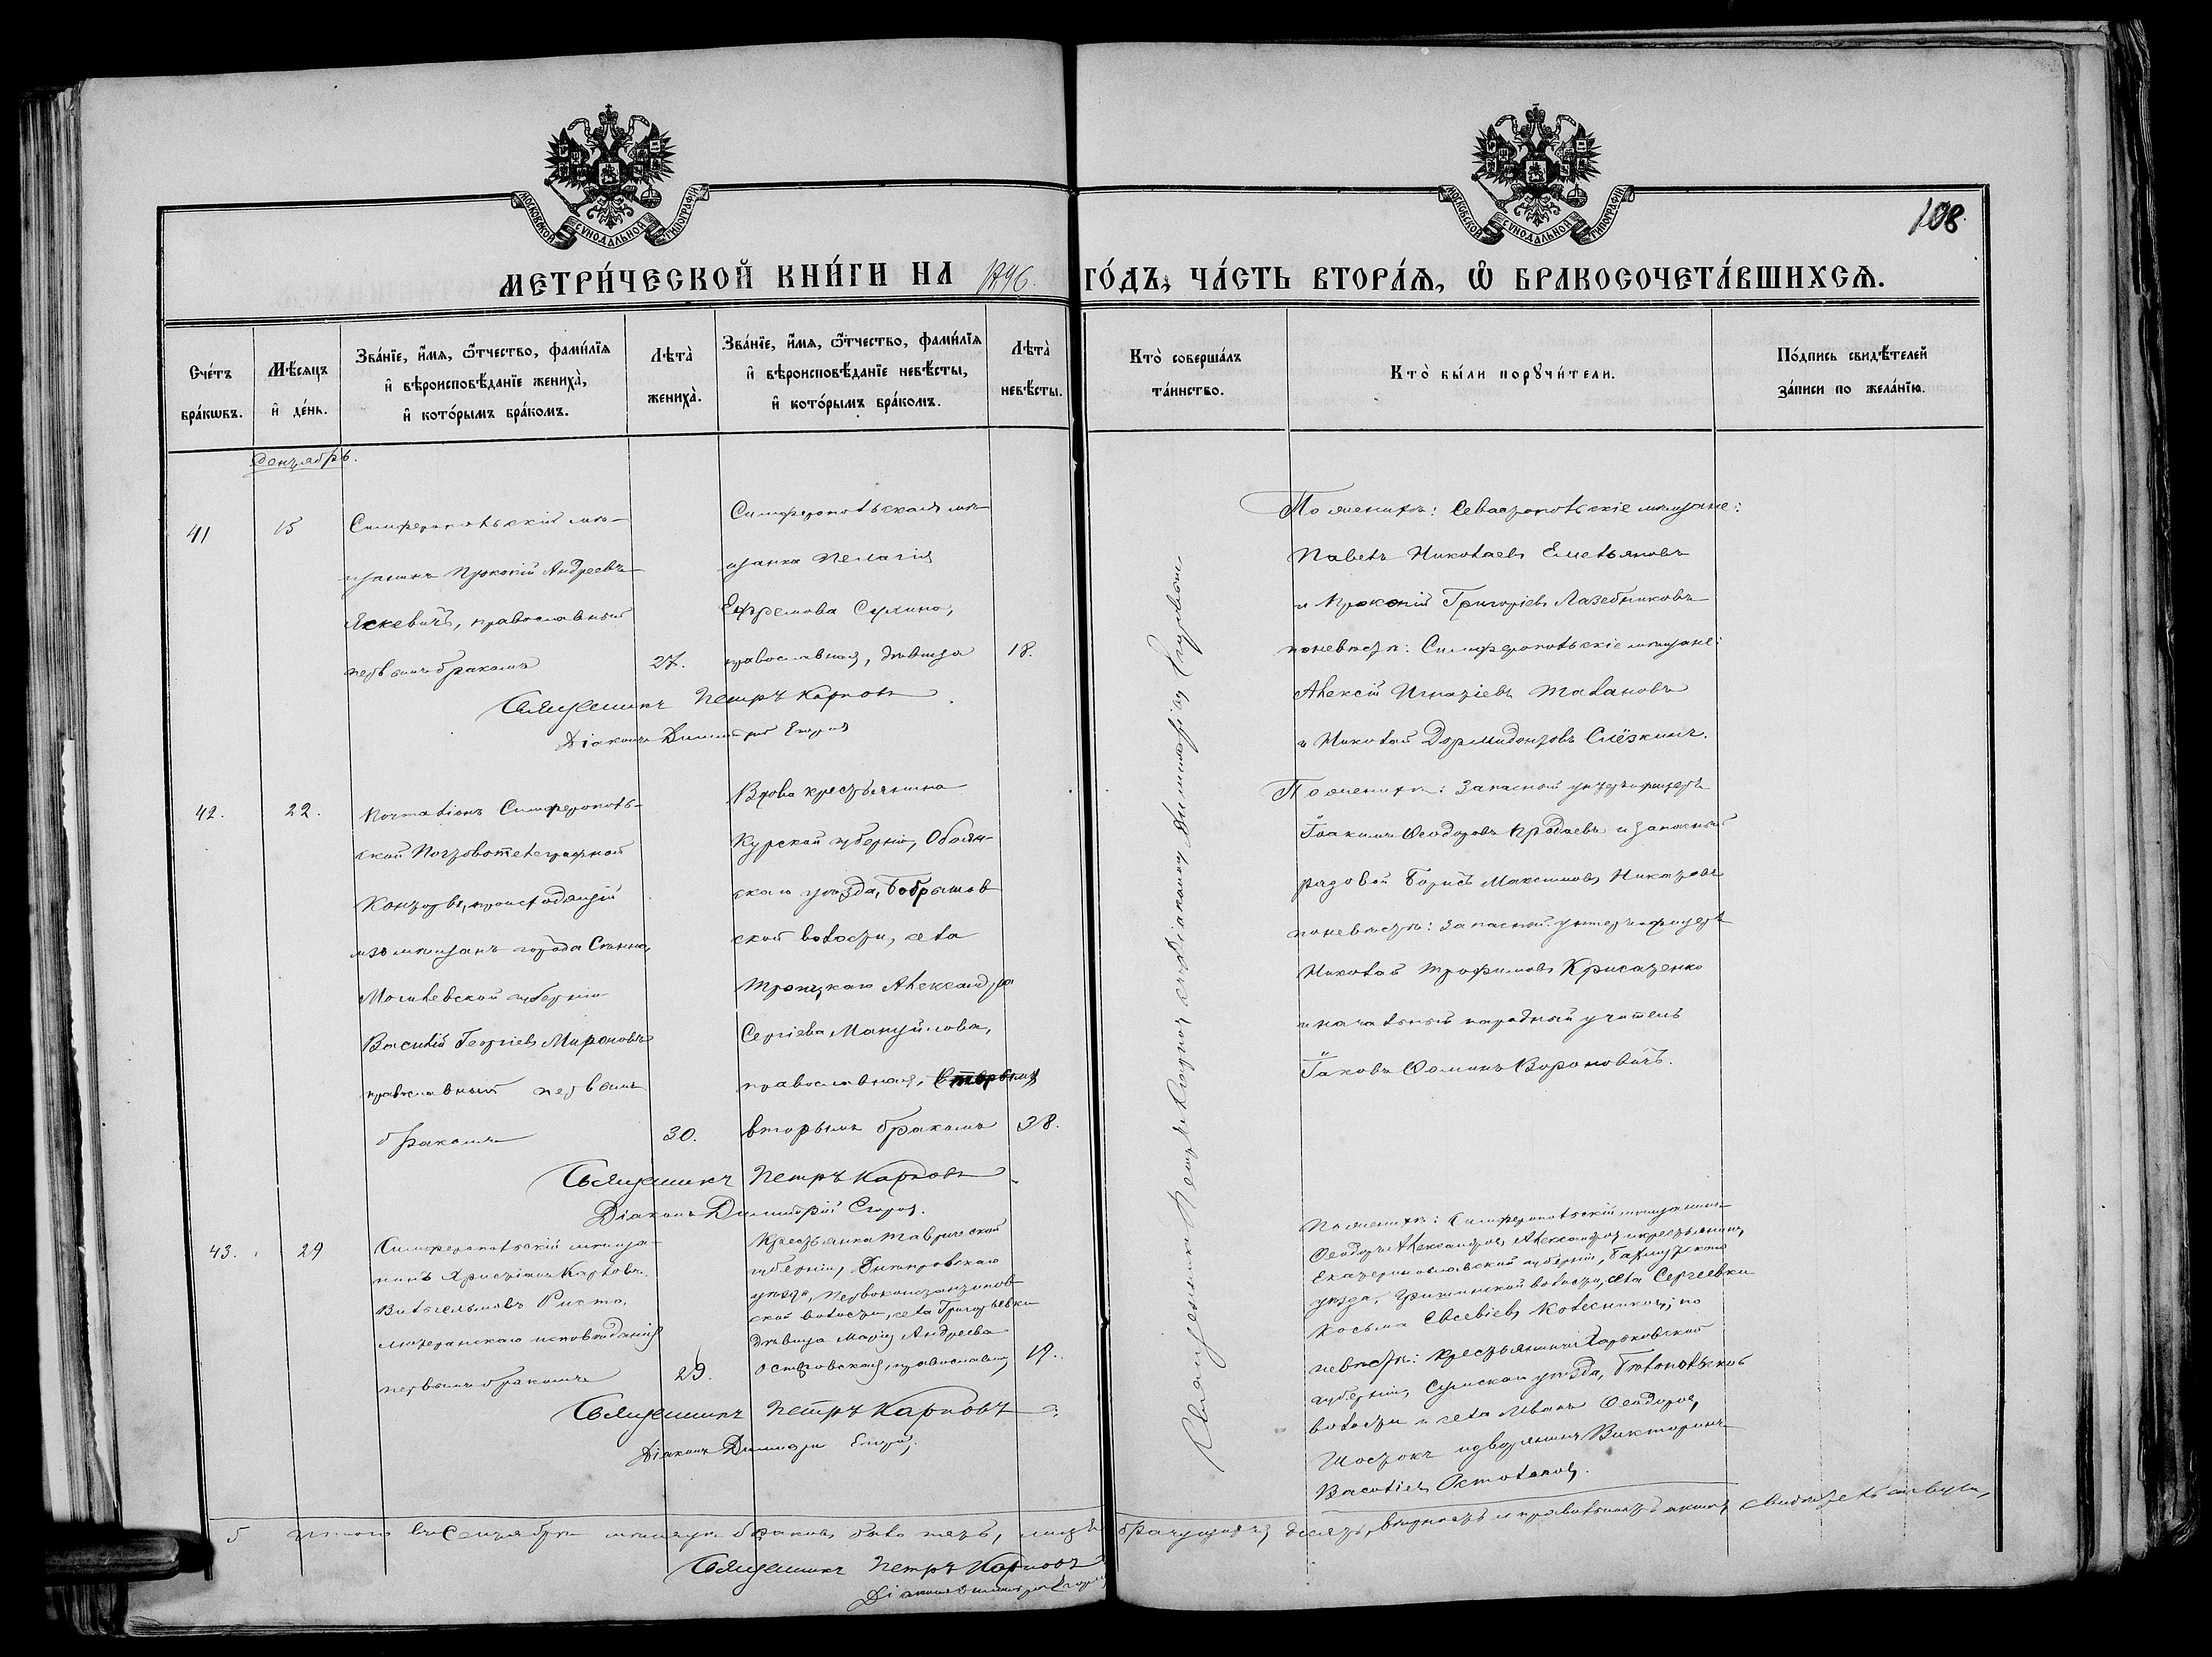 108.
МОСКОВСКОЙ СУНОДАЛЬНОЙ ТИПОГРАФІИ
МОСКОВСКОЙ СУНОДАЛЬНОЙ ТИПОГРАФІИ
МЕТРИ́ЧЕСКОЙ КНИ́ГИ НА 1896. ГО́ДЪ, ЧА́СТЬ ВТОРА́Ѧ, Ѽ БРАКОСОЧЕТА́ВШИХСѦ.
Сче́тъ бра́кѡвъ.
Мѣ́сѧцъ и҆ де́нь.
Зва́нїе, и҆́мѧ, ѻ҆́тчество, фами́лїѧ
и҆ вѣроисповѣ́данїе жениха̀,
и҆ кото́рымъ бра́комъ.
Лѣта̀ жениха̀.
Зва́нїе, и҆́мѧ, ѻ҆́тчество, фами́лїѧ
и҆ вѣроисповѣ́данїе невѣ́сты,
и҆ кото́рымъ бра́комъ.
Лѣта̀ невѣ́сты.
Кто̀ соверша́лъ
та́инство.
Кто̀ бы́ли порꙋчи́тели.
По́дпись свидѣ́телей
за́писи по жела́нїю.
Декабрь.
41
15
Симферопольскій мѣ-
щанинъ Прокопій Андреевъ
Яскевичъ, православный
первымъ бракомъ
27.
Симферопольская мѣ-
щанка Пелагія
Ефремова Сулина,
православная, дѣвица
18.
Священникъ Петръ Карповъ
Діаконъ Димитрій
По женихѣ: Севастопольскіе мѣщане:
Павелъ Николаевъ Емельяновъ
и Прокопій Григоріевъ Лазебниковъ
по невѣстѣ: Симферопольскіе мѣщане:
Алексій Игнатіевъ Талановъ
и Николай Дормидонтовъ Слёзкинъ.
42.
22.
Почталіонъ Симферополь-
ской Почтовотелеграфной
Конторы, происходящій
изъ мѣщанъ города Сѣнно,
Могилевской губерніи
Василій Георгіевъ Мироновъ
православный первымъ
бракомъ
30.
Вдова крестьянина
Курской губерніи, Обоян-
скаго уѣзда, Бобрышов
ской волости, села
Троицкаго Александра
Сергіева Мануйлова,
православная,
вторымъ бракомъ
38.
Священникъ Петръ Карповъ
Діаконъ Димитрій
По женихѣ: Запасной унтеръ-офицеръ
Іоакимъ Ѳеодоровъ и запасный
рядовой Борисъ Максимовъ
по невѣстѣ: Запасный унтеръ-офицеръ
Николай Трофимовъ Крисаченко
и начальный народный учитель
Іаковъ Ѳоминъ Вороновичъ.
43.
29
Симферопольскій мѣща-
нинъ Христіанъ Карловъ
Вильгельмовъ Ристо,
лютеранскаго исповѣданія
первымъ бракомъ
29.
Крестьянка Таврической
губерніи, Днѣпровскаго
уѣзда, Первоконстантинов
ской волости, села Григорьевки
дѣвица Марія Андреева
Островская, православная,
19.
Священникъ Петръ Карповъ
Діаконъ Димитрій
По женихѣ: Симферопольскій мѣщанинъ
Ѳеодоръ Александровъ Александровъ и крестьянинъ,
Екатеринославской губерніи, Бахмутскаго
уѣзда, Гришинской волости, села Сергіевки
Косьма Евсевіевъ Колесниковъ; по
невѣстѣ: крестьянинъ Харьковской
губерніи, Сумскаго уѣзда,
волости и села Иванъ Ѳеодоровъ
и дворянинъ Викторинъ
Василіевъ
Священникъ Петръ Карповъ съ Діакономъ Димитріемъ
5 Итого въ Декабрѣ мѣсяцѣ браковъ было пять, лицъ брачущихся десять, вѣрность и правильность актовъ свидѣтельствуемъ,
Священникъ Петръ Карповъ
Діаконъ Димитрій